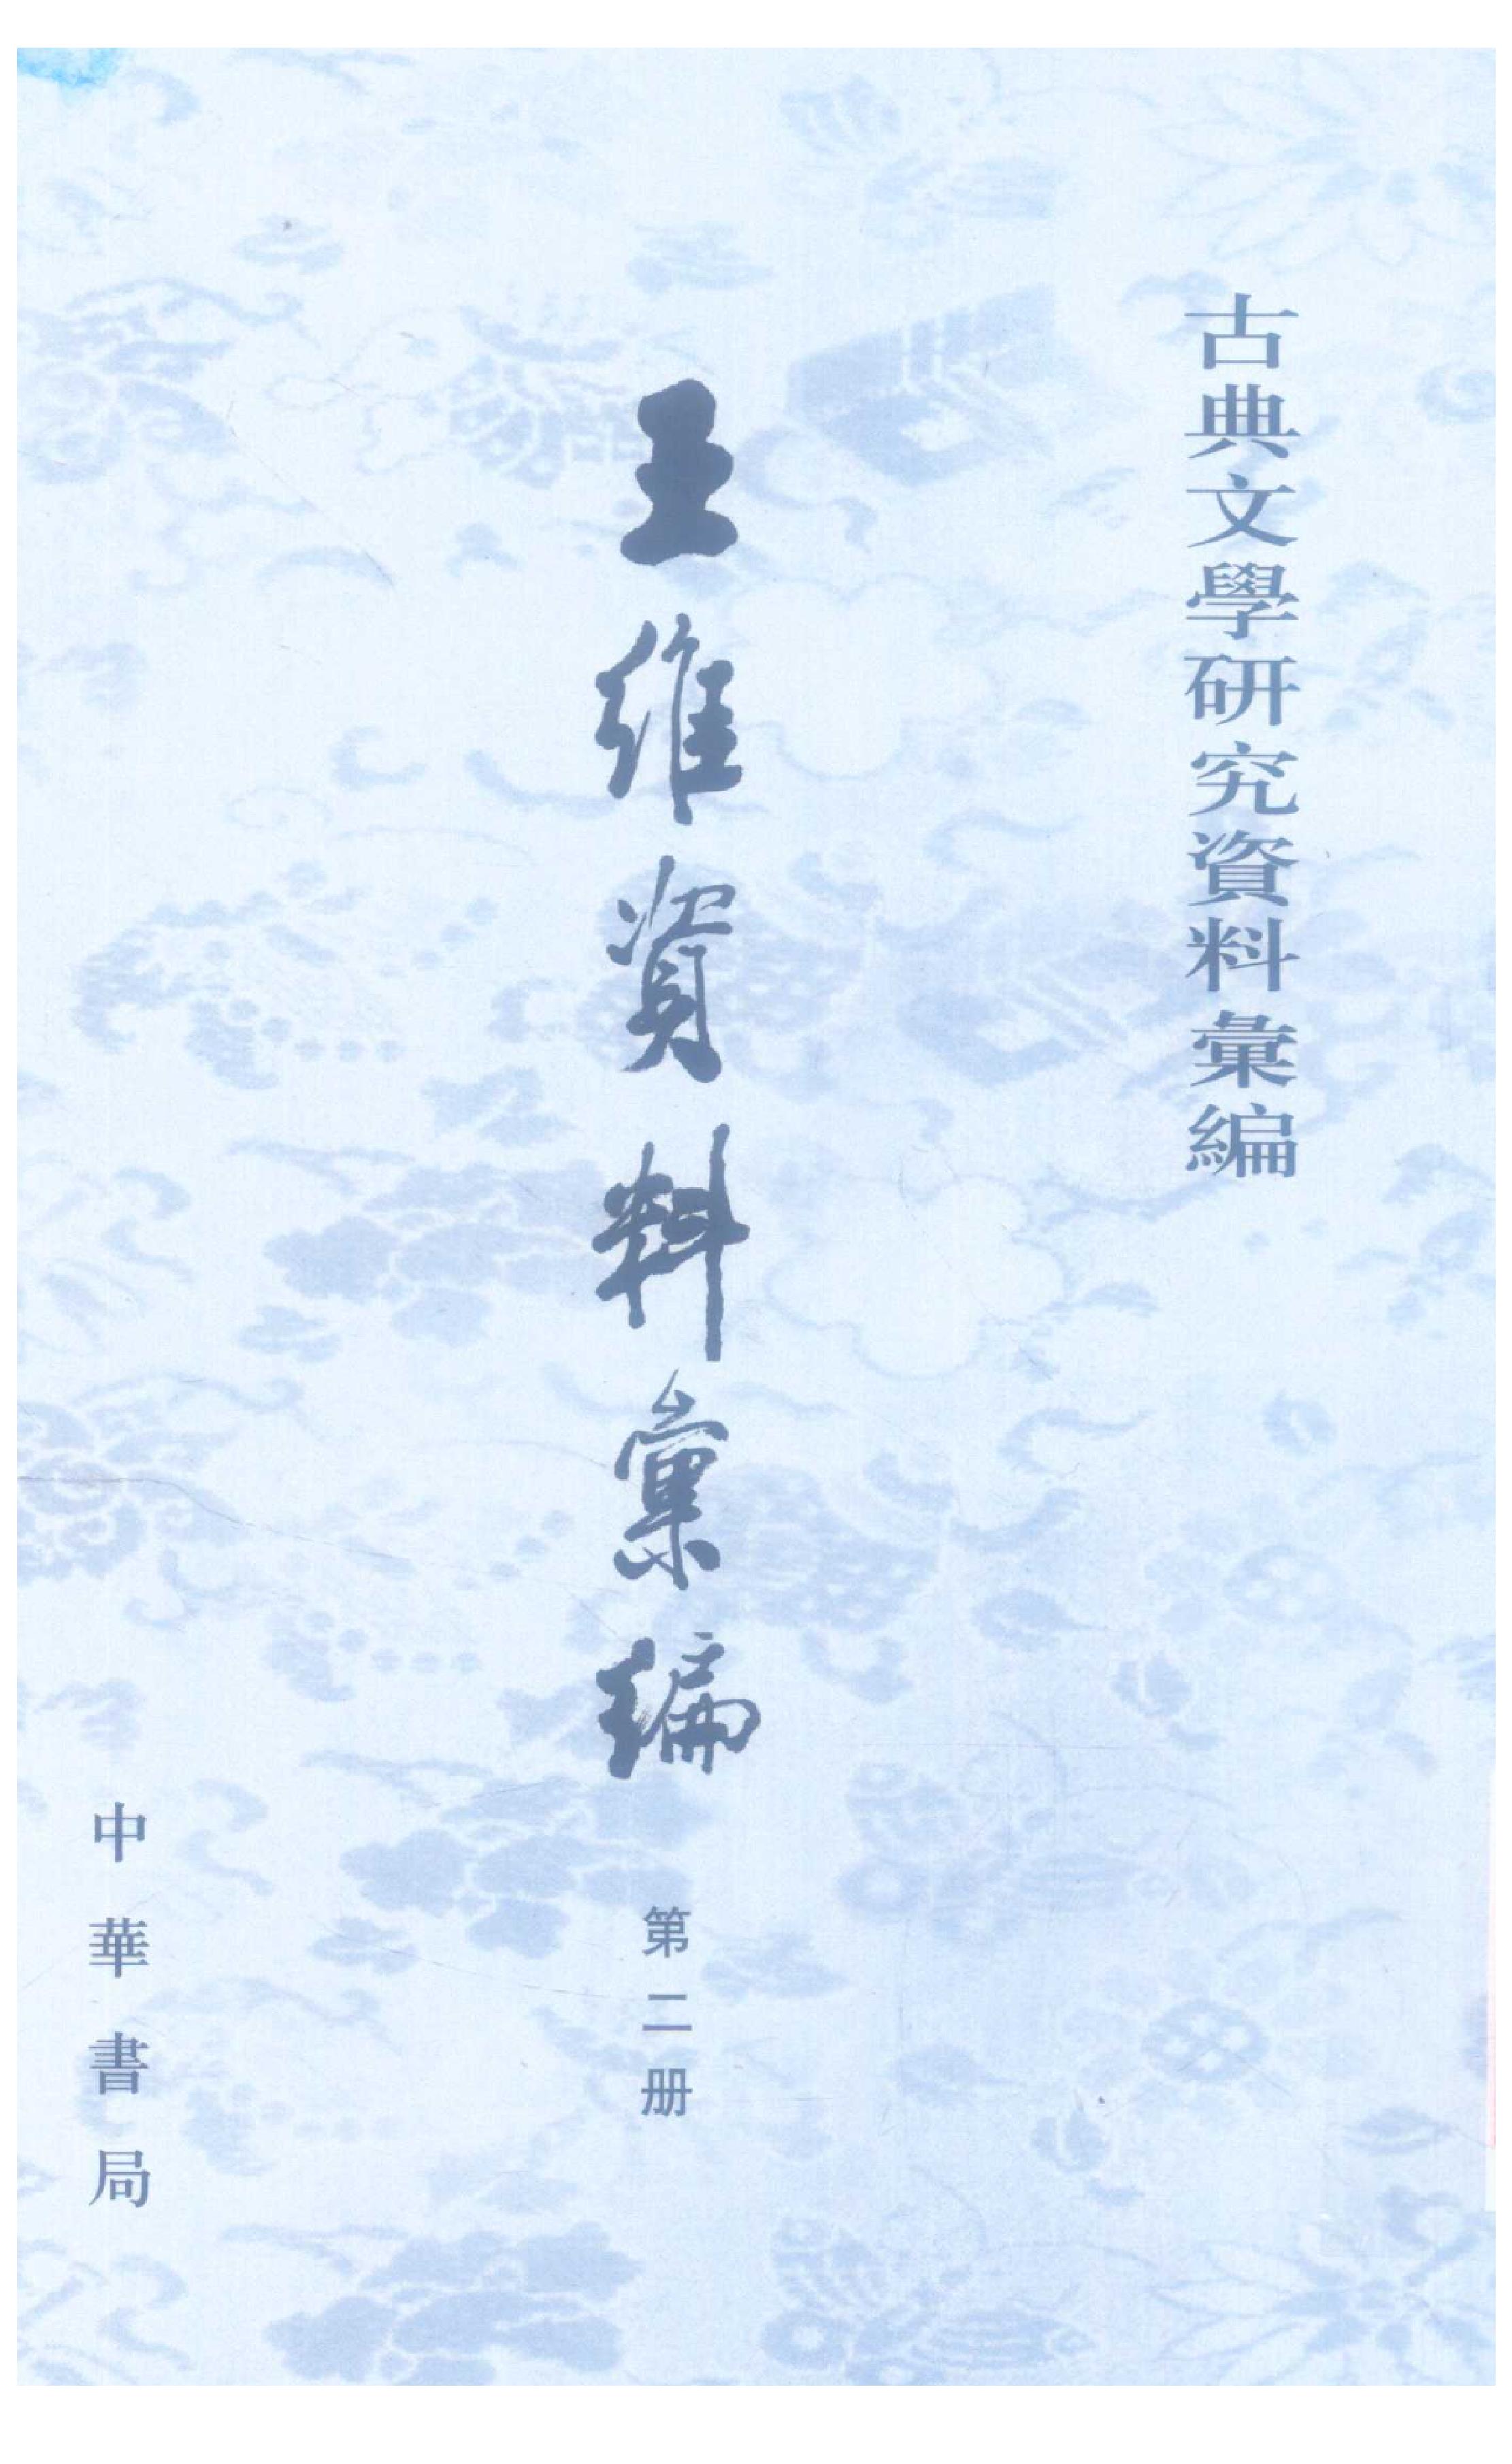 古典文學研究資料彙編
王維資料彙編
第二册
中華書局